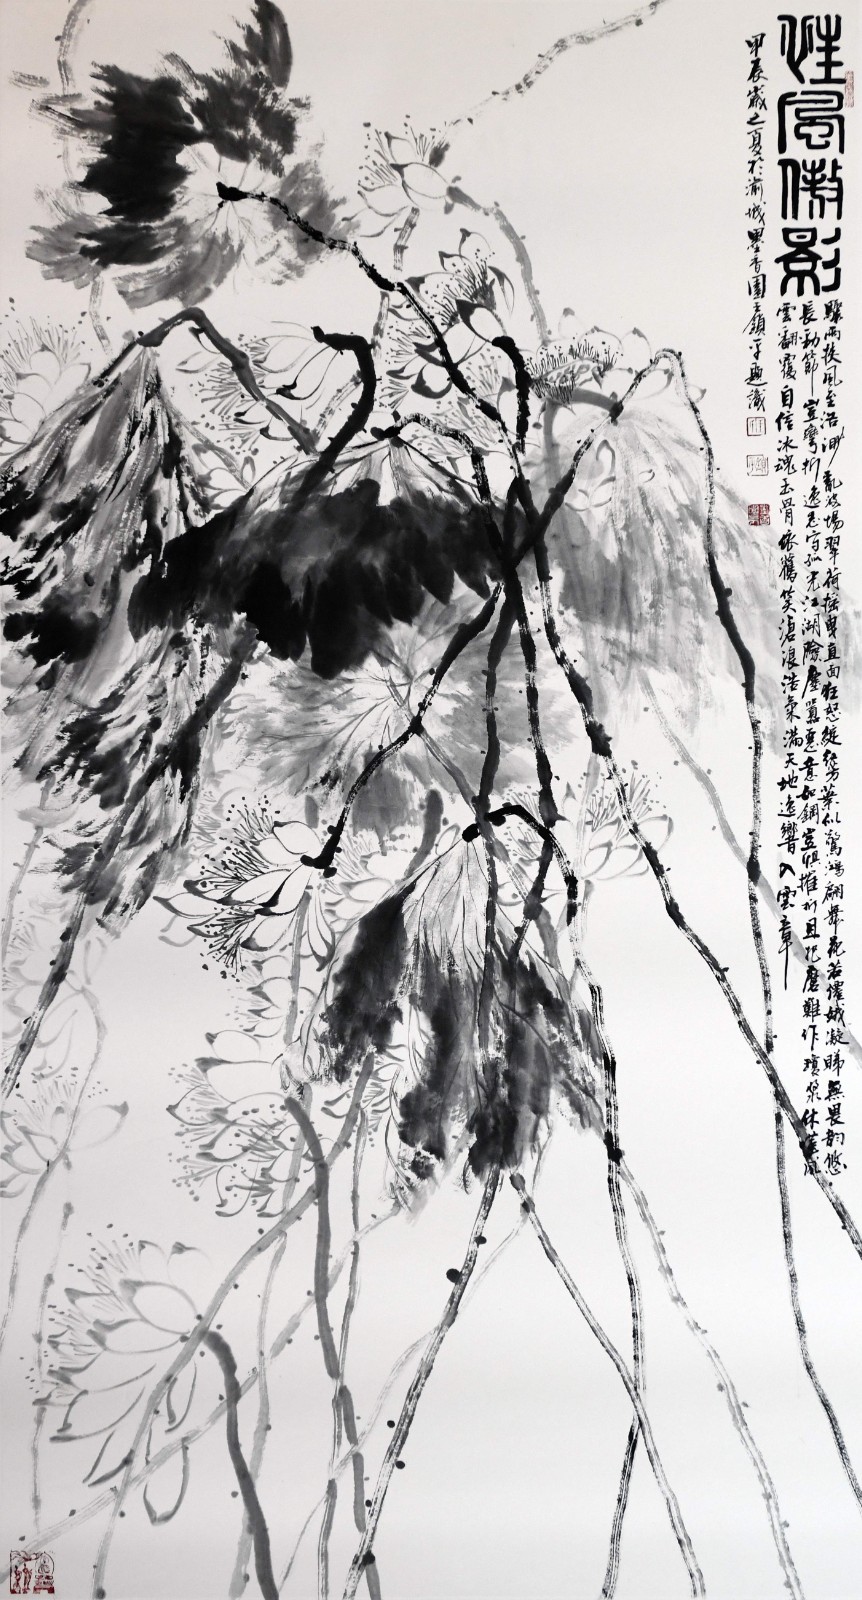 狂風傲影
驟雨疾風至浩渺亂波揚翠荷摇曳直面狂怒綻芬芳葉似驚鴻翩舞花若僊娥凝睇無畏韵悠
長勁節豈彎折逸志寫孤光江湖險塵囂惡意如鋼豈惧摧折且把磨難作瓊漿休嘆風
雲翻覆自信冰魂玉骨依舊笑滄浪浩氣滿天地逸響入雲章
甲辰歲之夏於渝城墨香園王鎮平題識